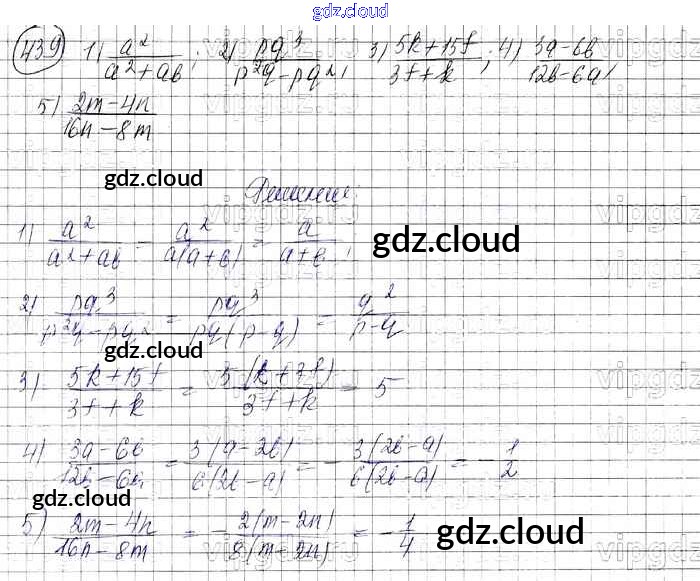 gdz.cloud
439 1) a²/(a²+ab); 2) pq³/(p²q-pq²); 3) (5k+15f)/(3f+k); 4) (3a-6b)/(12b-6a);
5) (2m-4n)/(16n-8m)
gdz.cloud
Решение:
1) a²/(a²+ab) = a²/(a(a+b)) = a/(a+b); gdz.cloud
gdz.cloud
2) pq³/(p²q-pq²) = pq³/(pq(p-q)) = q²/(p-q)
gdz.cloud
3) (5k+15f)/(3f+k) = 5(k+3f)/(3f+k) = 5
4) (3a-6b)/(12b-6a) = 3(a-2b)/(6(2b-a)) = -3(2b-a)/(6(2b-a)) = -1/2
gdz.cloud
5) (2m-4n)/(16n-8m) = -2(m-2n)/(8(m-2n)) = -1/4 gdz.cloud
gdz.cloud